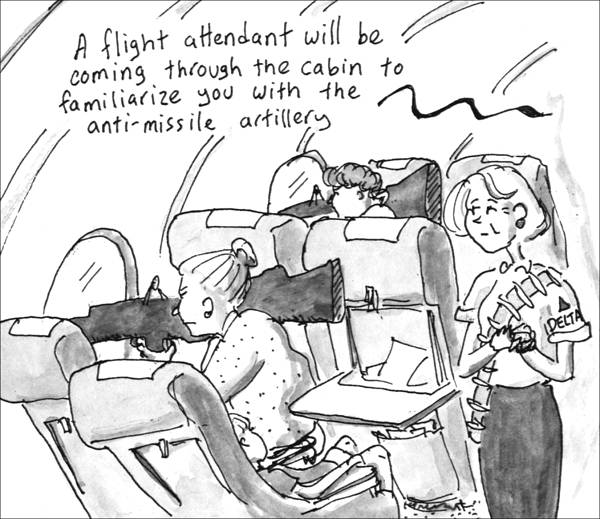 A flight attendant will be
coming through the cabin to
familiarize you with the
anti-missile artillery
DELTA